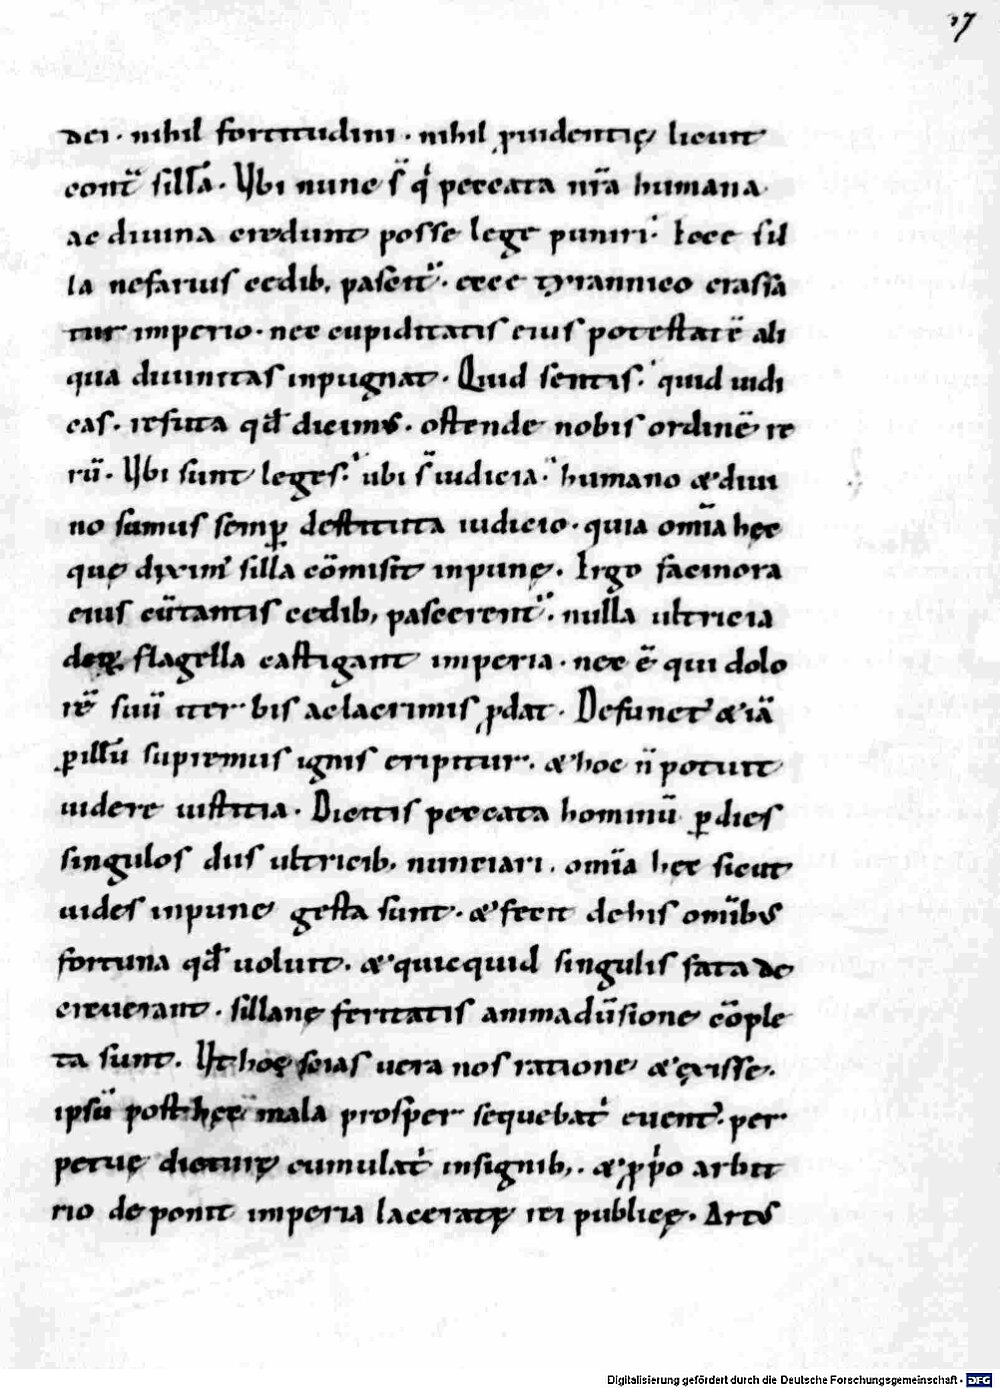 17
dei · nihil fortitudini · nihil prudentię licuit
contͣ sillā · Ubi nunc s̄ qͥ peccata nr̄a humana
ac diuina credunt posse lege puniri · Ecce sil
la nefarius cedib; pascit᷑ · ecce tyrannico crassā
tur imperio · nec cupiditatis eius potestatē ali
qua diuinitas inpugnat · Quid sentis · quid iudi
cas · refuta qđ dicimus · ostende nobis ordinē re
rū · Ubi sunt leges · ubi s̄ iudicia · humano & diui
no sumus semꝑ destituta iudicio · quia om̄ia hęc
quę diximꝰ silla cōmisit inpunę · Ergo facinora
eius cū tantis cedib; pascerent᷑ · nulla ultricia
deoꝝ flagella castigant imperia · nec ē qui dolo
rē suū iter bis ac lacrimis ꝓdat · Defunctꝰ & iā
ꝑ illū supremus ignis eripitur · & hoc n̄ potuit
uidere iustitia · Dicitis peccata hominū ꝑ dies
singulos diis ultricib; nunciari · om̄ia hęc sicut
uides inpune gesta sunt · & fecit de his om̄ibus
fortuna qđ uoluit · & quicquid singulis fata de
creuerant · sillanę feritatis animaduersione cōple
ta sunt · Ut hoc scias uera nos ratione & exisse ·
ipsū post hęc mala prosper sequebatᷣ euentꝰ · per
petuę dicturę cumulatᷣ insignib; · & ꝓpͥo arbit
rio deponit imperia laceratę rei publicę · Artus